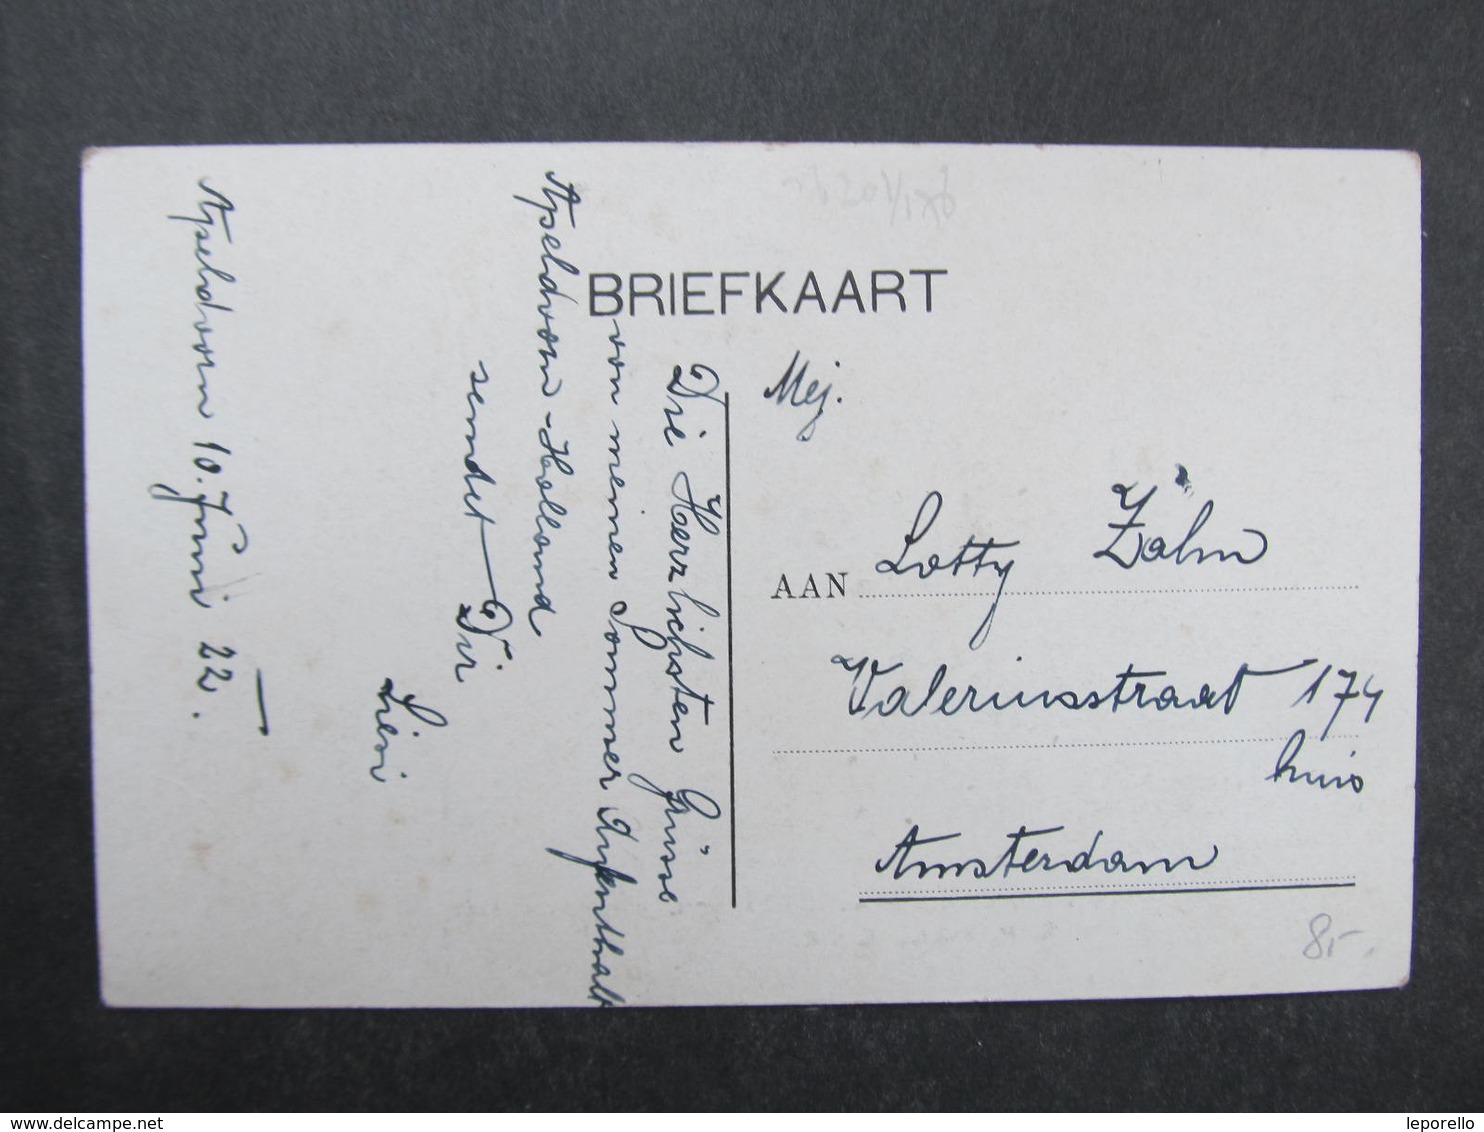 BRIEFKAART
Die Herzlichsten Grüsse
von meinen Sommer Aufenthalt
Apeldoorn-Holland
sendet Dir
Lieni
Apeldoorn 10. Juni 22.
Mej.
AAN Lotty Zálm
Valeriusstraat 174
huis
Amsterdam
8,-.
www.delcampe.net
leporello